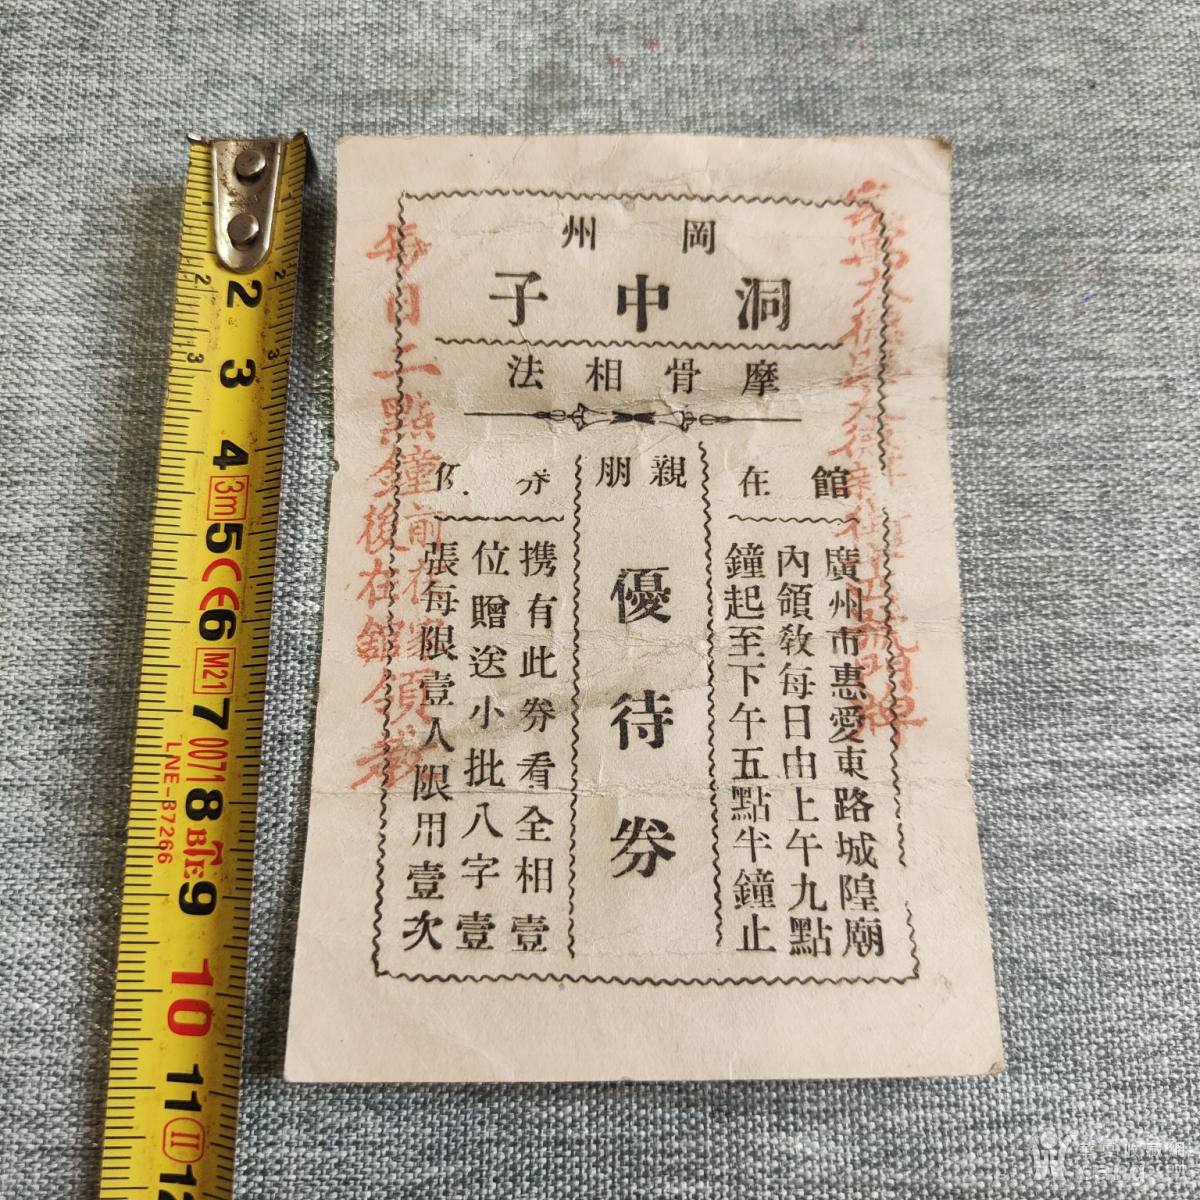 岡州
洞中子
摩骨相法
館在
廣州市惠愛東路城隍廟
內領教每日由上午九點
鐘起至下午五點半鐘止
親朋
優待券
券
携有此券看全相壹
位贈送小批八字壹
張每限壹人限用壹次
每日二點鐘前在家領教
後在館
2
3
4
3m
5
6
M21
7
0071
8
9
10
11
II
12
LNE-87266
2
3
2
3